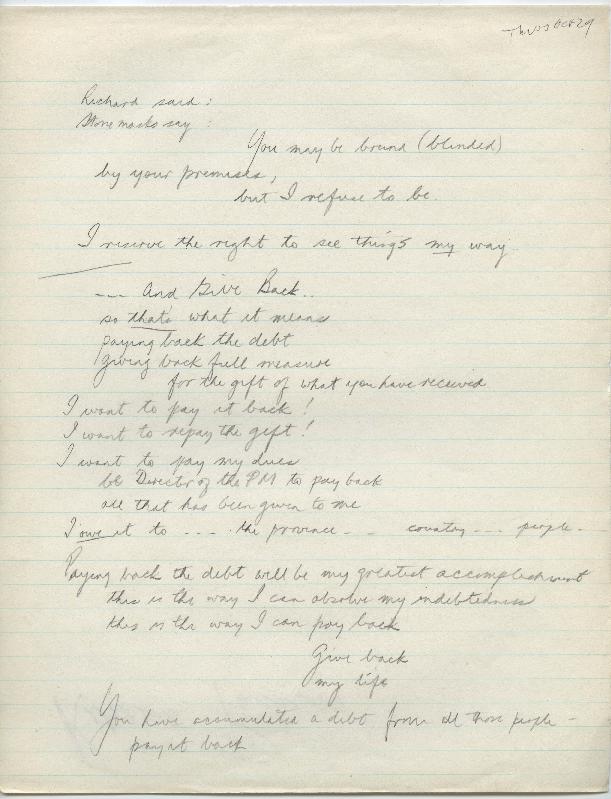 Thurs Oct 29
Richard said:
Stone masks say:
You may be bound (blinded)
by your premises,
but I refuse to be.
I reserve the right to see things my way.
--- And Give Back..
so that's what it means
paying back the debt
giving back full measure
for the gift of what you have received
I want to pay it back!
I want to repay the gift!
I want to pay my dues
be Director of the PM to pay back
all that has been given to me
I owe it to --- the province --- country --- people -
Paying back the debt will be my greatest accomplishment
this is the way I can absolve my indebtedness
this is the way I can pay back
Give back
my life
You have accumulated a debt from all those people -
pay it back